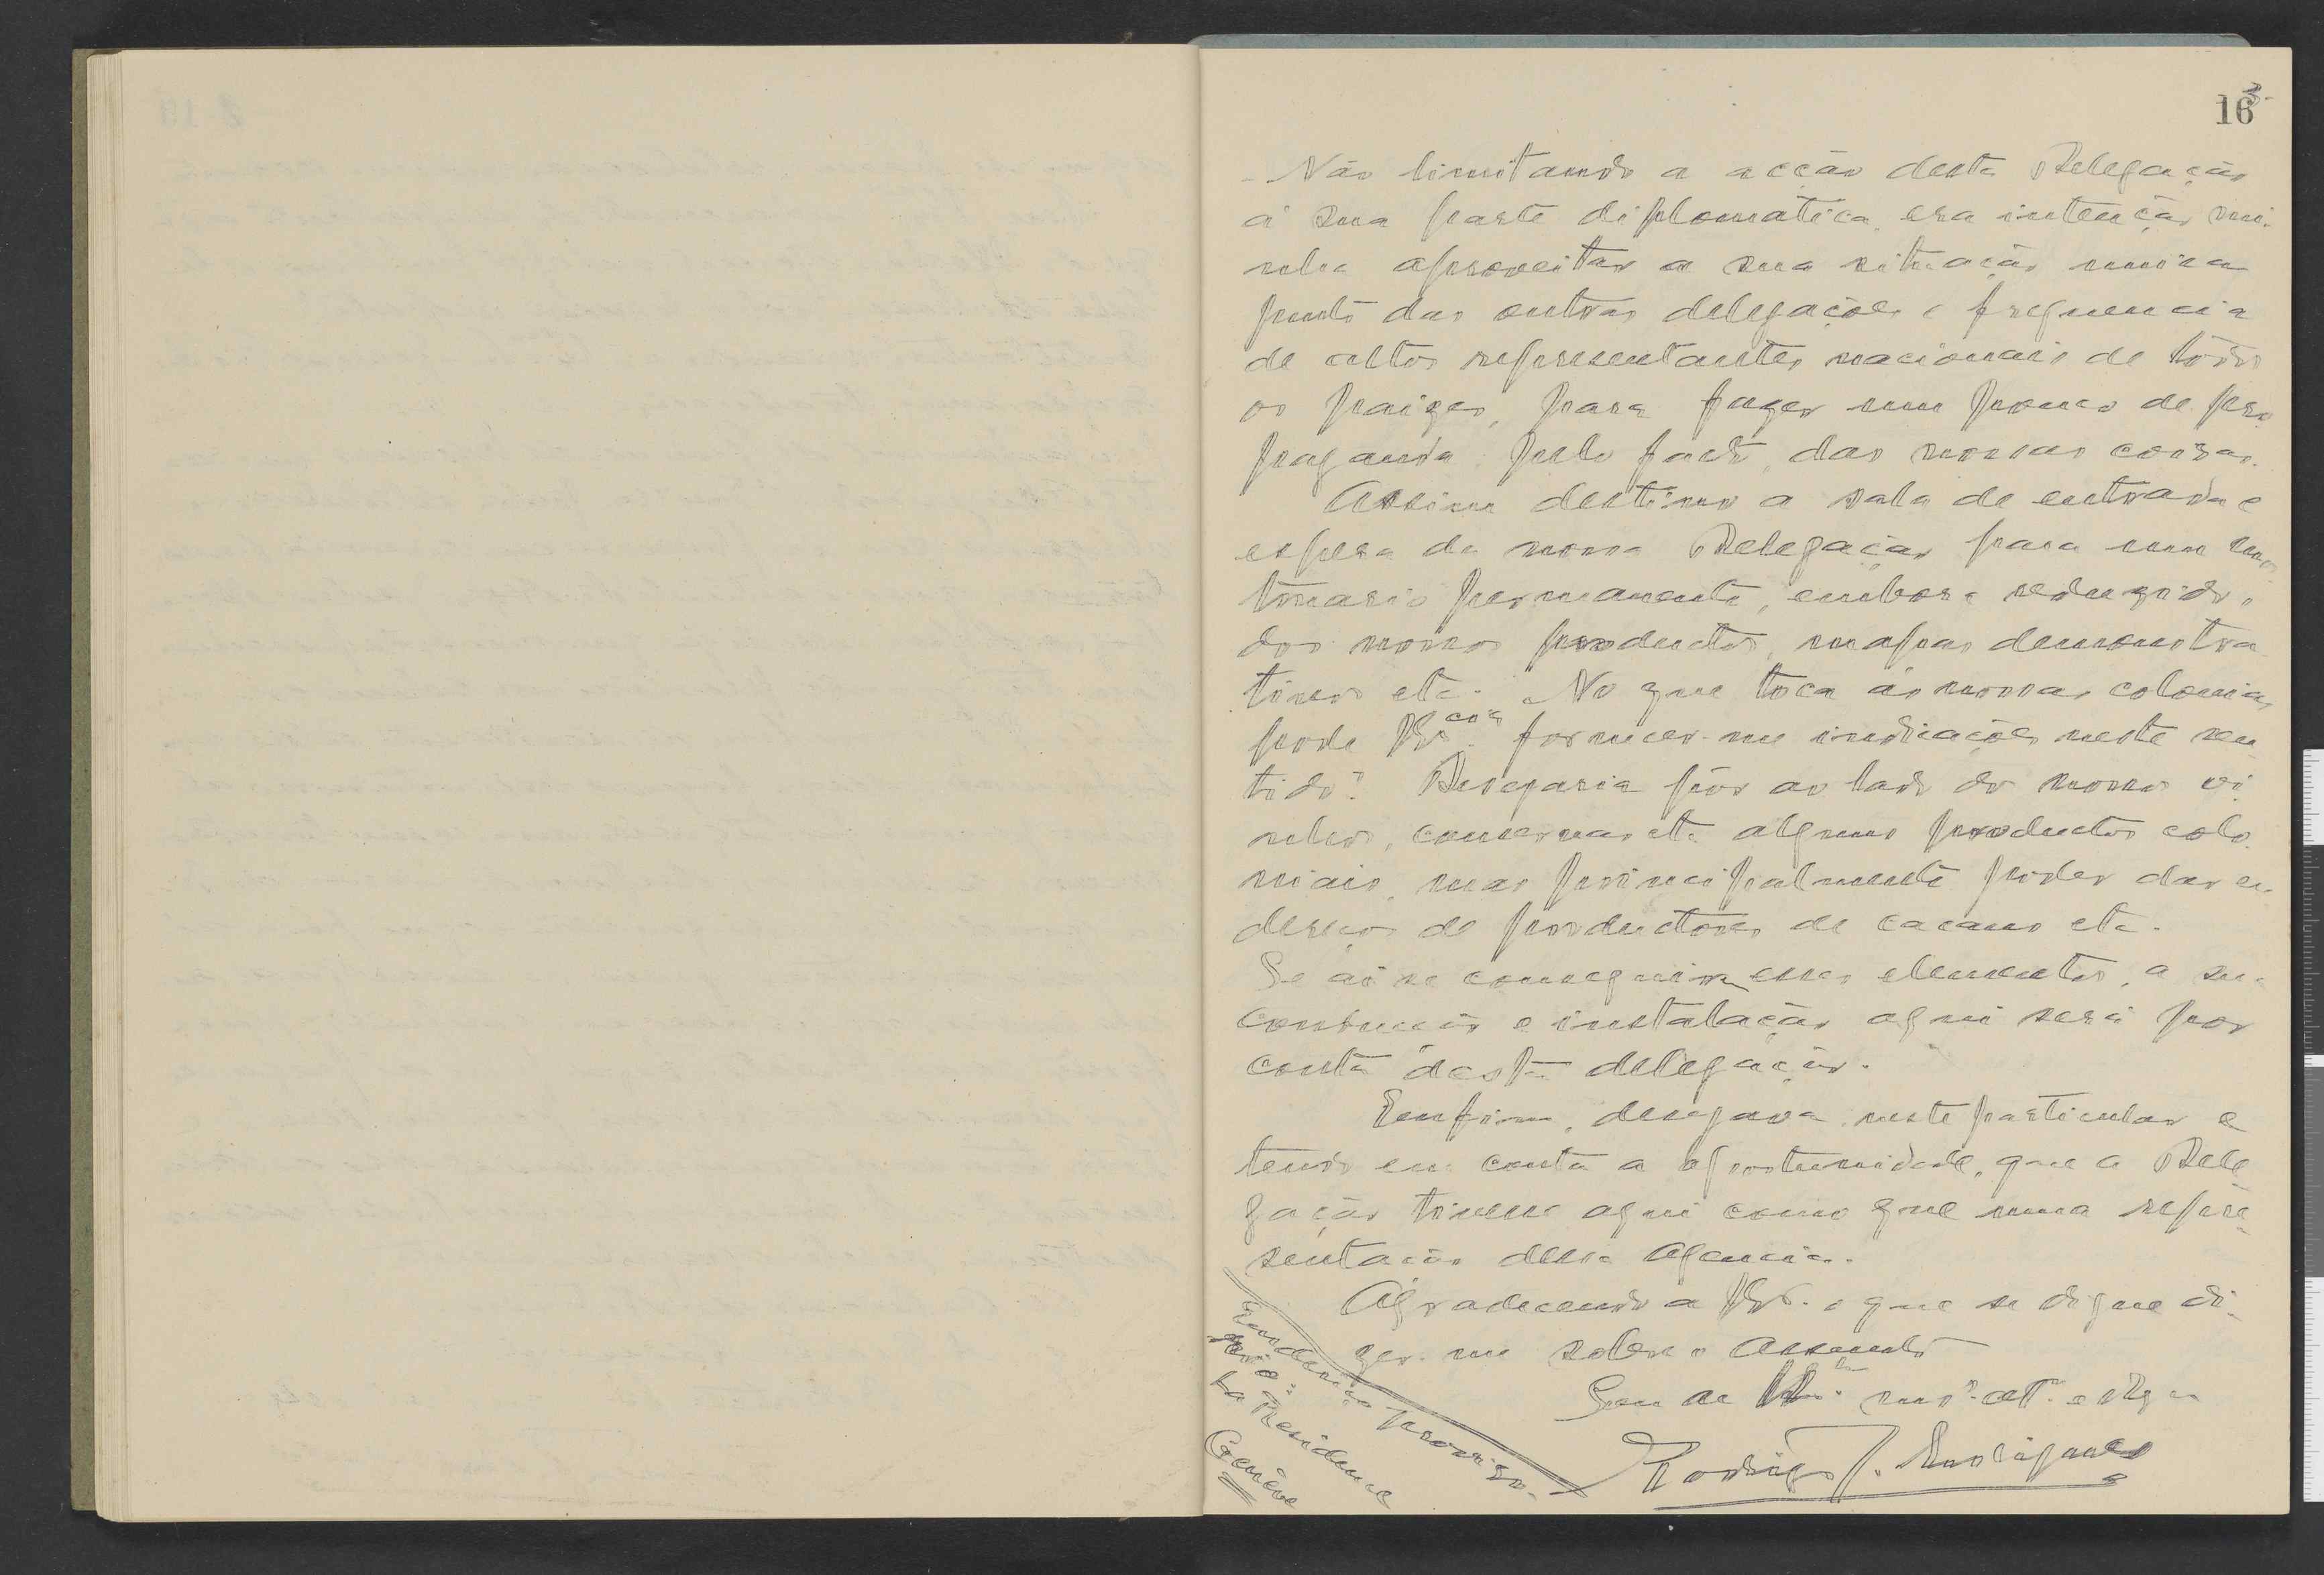 16
3-
- Não limitando a acção desta Delegação
á sua parte diplomatica, era intenção mi-
nha aproveitar a sua situação unica
junto das outras delegações e frequencia
de altos representantes nacionais de todos
os paizes, para fazer um pouco de pro
paganda, pelo facto, das nossas coisas.
Assim destino a sala de entrada e
espera da nossa Delegação para um mos
truario permanente, embora reduzido,
dos nossos productos, mapas demonstra
tivos etc. No que toca ás nossas colonias
pode V. Ex.cia fornecer-me indicações neste sen
tido? Desejaria pôr ao lado do nosso vi
nho, conservas etc alguns productos colo
niais, mas principalmente poder dar en
dereços de productores de cacau etc.
Se aí se conseguirem esses elementos, a sua
condução e instalação aqui será por
conta desta delegação.
Emfim, desejava neste particular e
tendo em conta a oportunidade, que a Dele
gação tivesse aqui como que uma repre
sentação dessa Agencia.
Agradecendo a V. Ex. o que se digne di-
zer-me sobre o assunto
Sou de V. Ex. mto. att.
Rodrigo J. Rodrigues
Residencia proviso-
ria:
La Residence
Genève